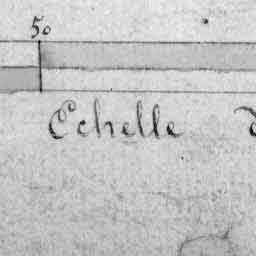 50
Echelle